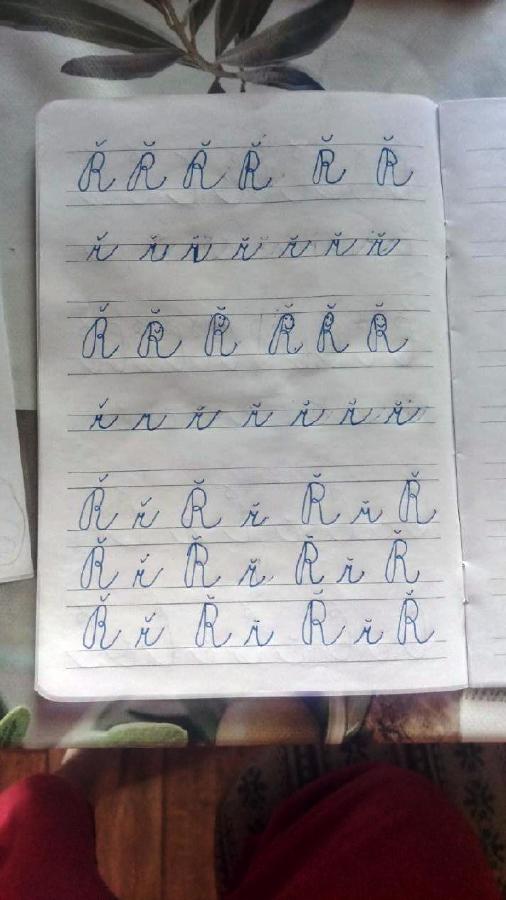 Ř Ř Ř Ř Ř Ř
ř ř ř ř ř ř ř
Ř Ř Ř Ř Ř Ř
ř r ř ř ř ř ř
Ř ř Ř ř Ř ř Ř
Ř ř Ř ř Ř ř Ř
Ř ř Ř ř Ř ř Ř